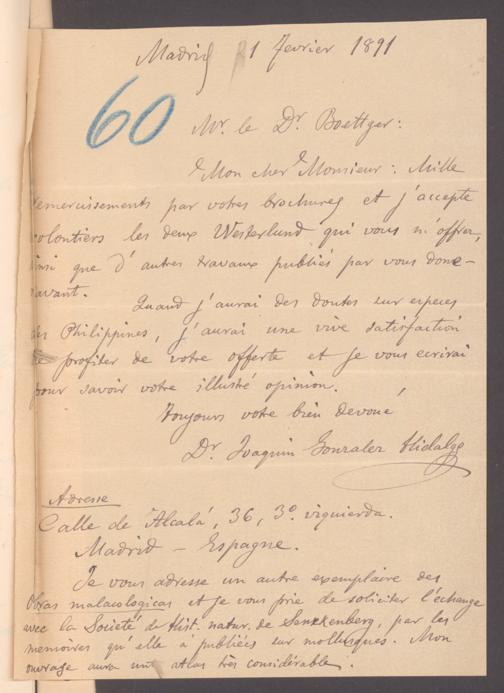 Madrid 1 fevrier 1891
60
Mr. le Dr. Boettger:
Mon cher Monsieur: Mille
remercissements par votres brochures et j'accepte
volontiers les deux Westerlund qui vous m'offrez,
ainsi que d'autres travaux publiés par vous dore-
navant.
Quand j'aurai des doutes sur especes
des Philippines, j'aurai une vive satisfaction
de profiter de votre offerte et je vous ecrirai
pour savoir votre illustré opinion.
Toujours votre bien devoué
Dr. Joaquin Gonzalez Hidalgo
Adresse
Calle de Alcalá, 36, 3º izquierda.
Madrid — Espagne.
Je vous adresse un autre exemplaire des
Obras malacologicas et je vous prie de soliciter l'échange
avec la Societé de Hist. natur. de Senckenberg, par les
memoires qu'elle à publiées sur mollusques. Mon
ouvrage aura une atlas très considérable.